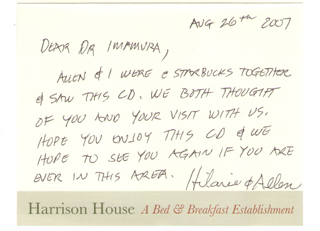 AUG 26th 2007
DEAR DR IMAMURA,
ALLEN & I WERE @ STARBUCKS TOGETHER
& SAW THIS CD. WE BOTH THOUGHT
OF YOU AND YOUR VISIT WITH US.
HOPE YOU ENJOY THIS CD & WE
HOPE TO SEE YOU AGAIN IF YOU ARE
EVER IN THIS AREA. Hilarie & Allen
Harrison House A Bed & Breakfast Establishment